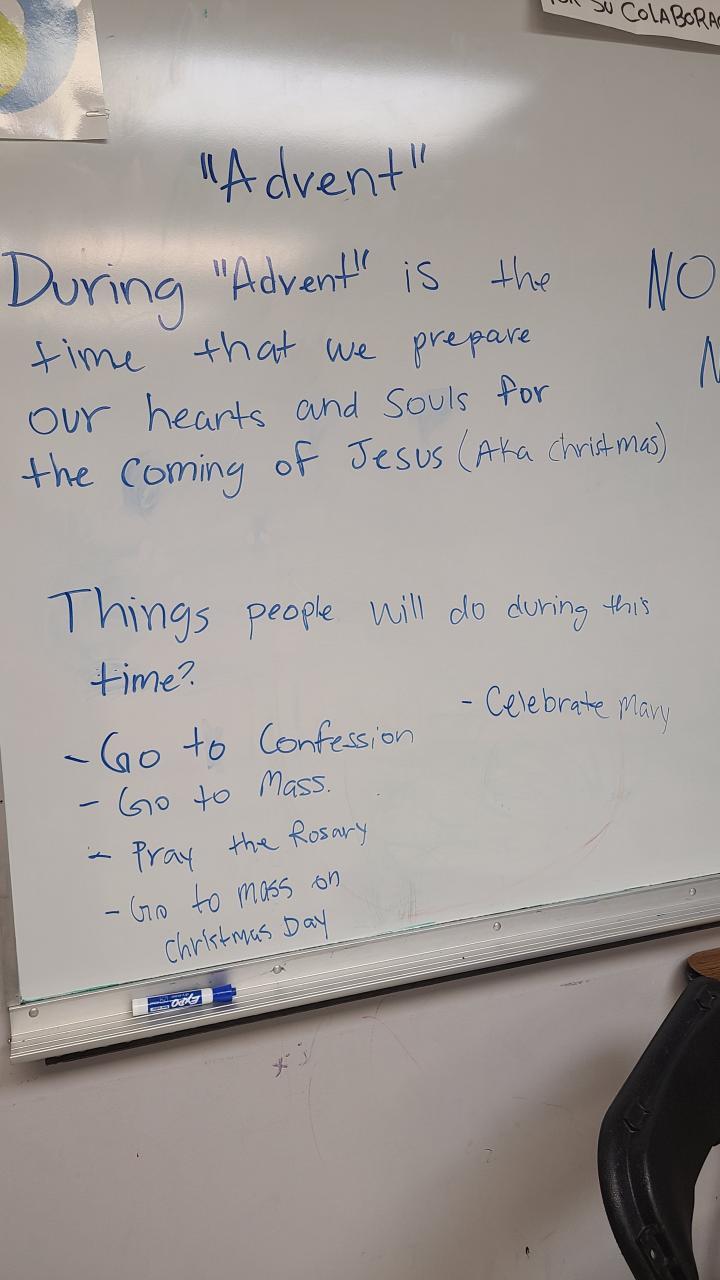 SU COLABORAC
"Advent"
During "Advent" is the
time that we prepare
our hearts and souls for
the coming of Jesus (Aka Christmas)
NO
N
Things people will do during this
time?
- Go to Confession
- Go to Mass.
- Pray the Rosary
- Go to mass on
Christmas Day
- Celebrate Mary
EXPO